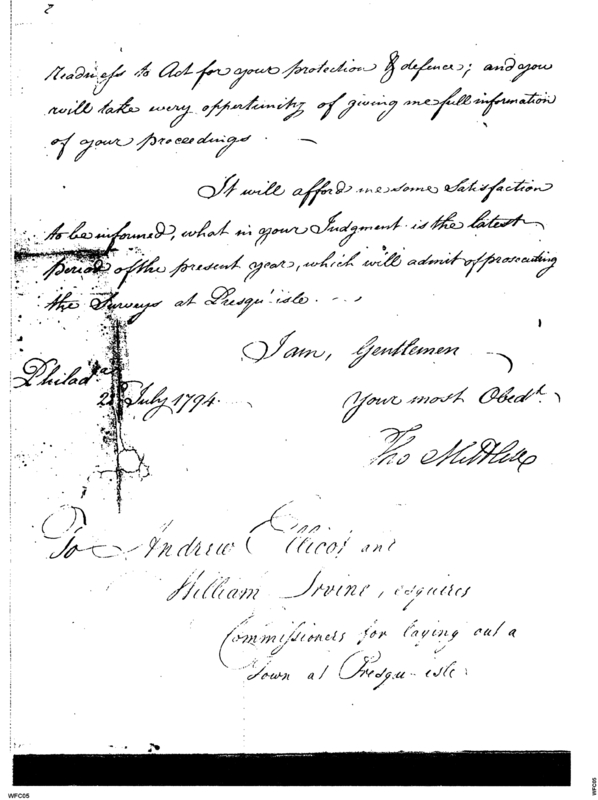 2
readiness to Act for your protection & defence; and you
will take every opportunity of giving me full information
of your proceedings. —
It will afford me some Satisfaction
to be informed, what in your Judgment is the latest
period of the present year, which will admit of prosecuting
the Surveys at Presqu'-isle. - - -
I am, Gentlemen
Philada
July 1794. your most Obedt.
Tho Mifflin
To Andrew Ellicot and
William Irvine, esquires
Commissioners for laying out a
Town at Presqu-isle.
WFC05
WFC05